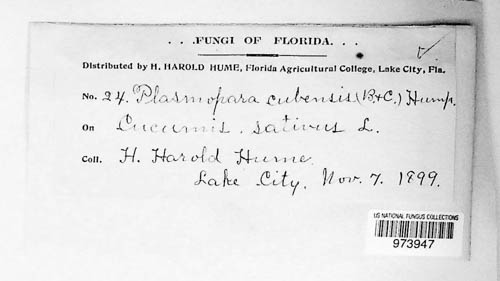 . . .FUNGI OF FLORIDA. . .
Distributed by H. HAROLD HUME, Florida Agricultural College, Lake City, Fla.
No. 24. Plasmopara cubensis (B+C.) Hump.
On Cucumis sativus L.
Coll. H. Harold Hume.
Lake City, Nov. 7. 1899.
US NATIONAL FUNGUS COLLECTIONS
973947